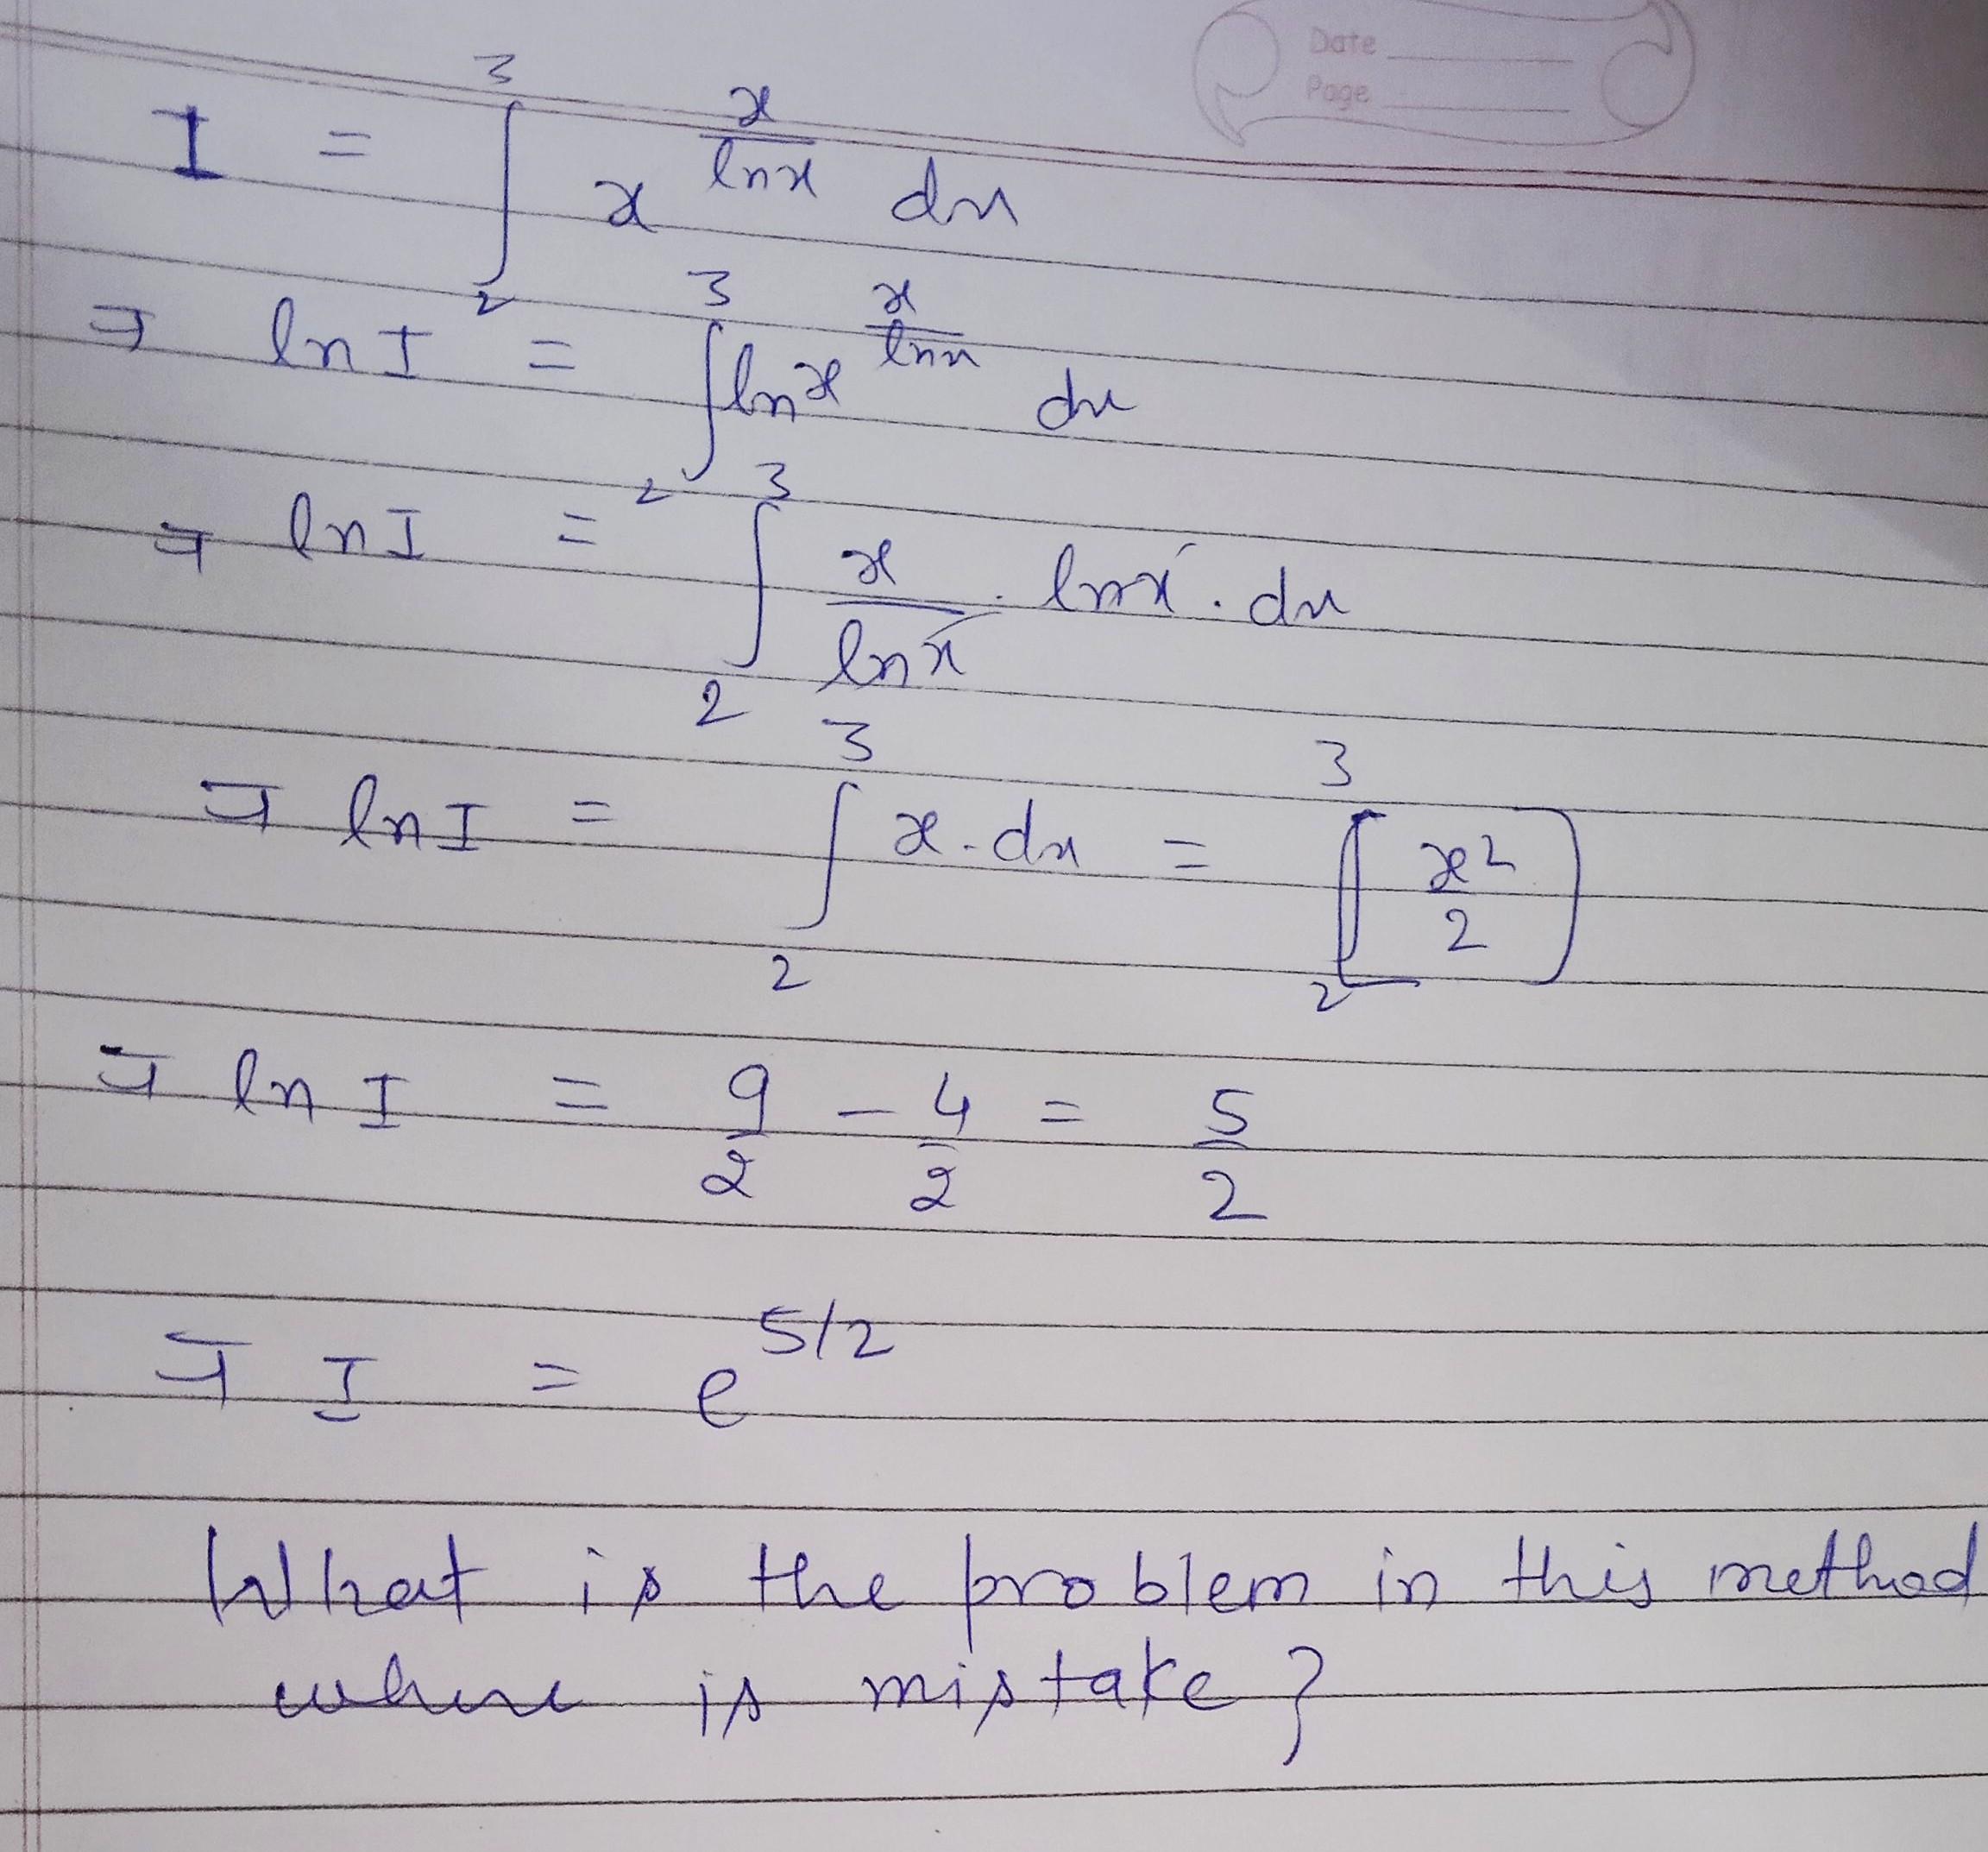 Date
Page
I = ∫₂³ x^(x/lnx) dx
⇒ ln I = ∫₂³ ln x^(x/lnx) dx
⇒ ln I = ∫₂³ x/lnx . lnx . dx
⇒ ln I = ∫₂³ x . dx = ₂³[x²/2]
⇒ ln I = 9/2 - 4/2 = 5/2
⇒ I = e^5/2
What is the problem in this method
where is mistake?